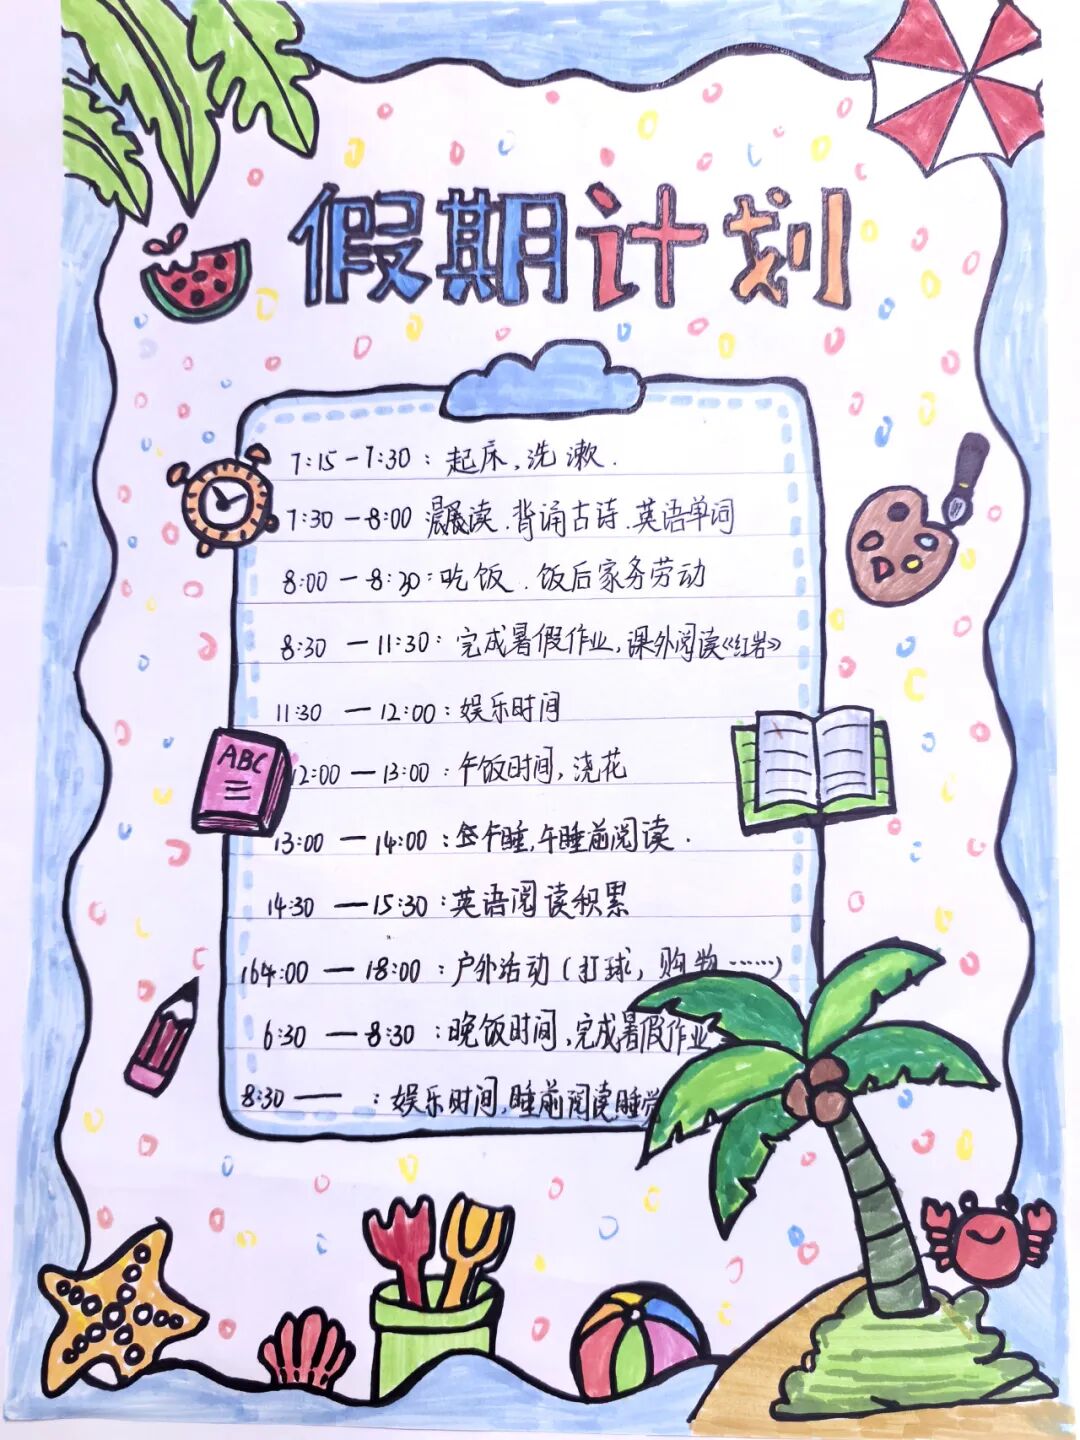 假期计划
7:15-7:30：起床,洗漱.
7:30-8:00 晨读.背诵古诗.英语单词
8:00-8:30：吃饭.饭后家务劳动
ABC
8:30-11:30：完成暑假作业,课外阅读《红岩》
11:30-12:00：娱乐时间
12:00-13:00：午饭时间,浇花
13:00-14:00：午睡,午睡前阅读.
14:30-15:30：英语阅读积累
16:00-18:00：户外活动(打球,购物……)
6:30-8:30：晚饭时间,完成暑假作业
8:30—：娱乐时间,睡前阅读睡觉